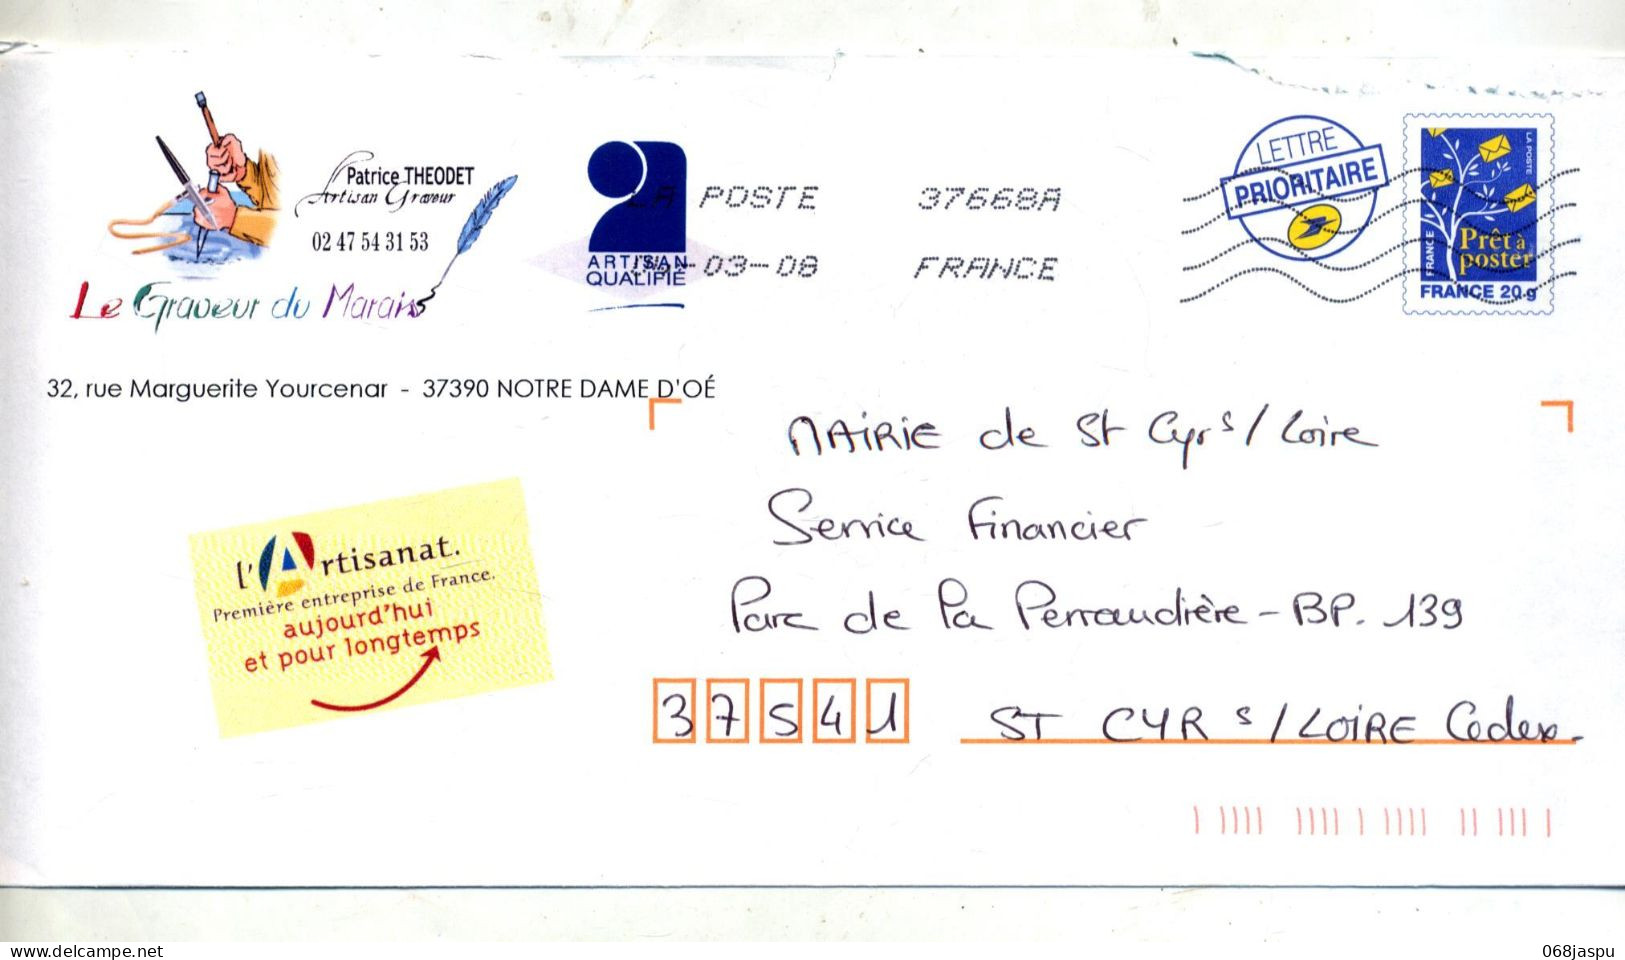 Patrice THEODET
Artisan Graveur
02 47 54 31 53
Le Graveur du Marais
ARTISAN
QUALIFIÉ
LA POSTE 37668A
-03-08 FRANCE
LETTRE
PRIORITAIRE
LA POSTE
FRANCE
Prêt à
poster
FRANCE 20 g
32, rue Marguerite Yourcenar - 37390 NOTRE DAME D'OÉ
MAIRIE de St Cyr s/ Loire
Service Financier
Parc de la Perraudière - BP. 139
37541 ST CYR s/LOIRE Cedex.
l'Artisanat.
Première entreprise de France.
aujourd'hui
et pour longtemps
Delcampe.net
068jaspu